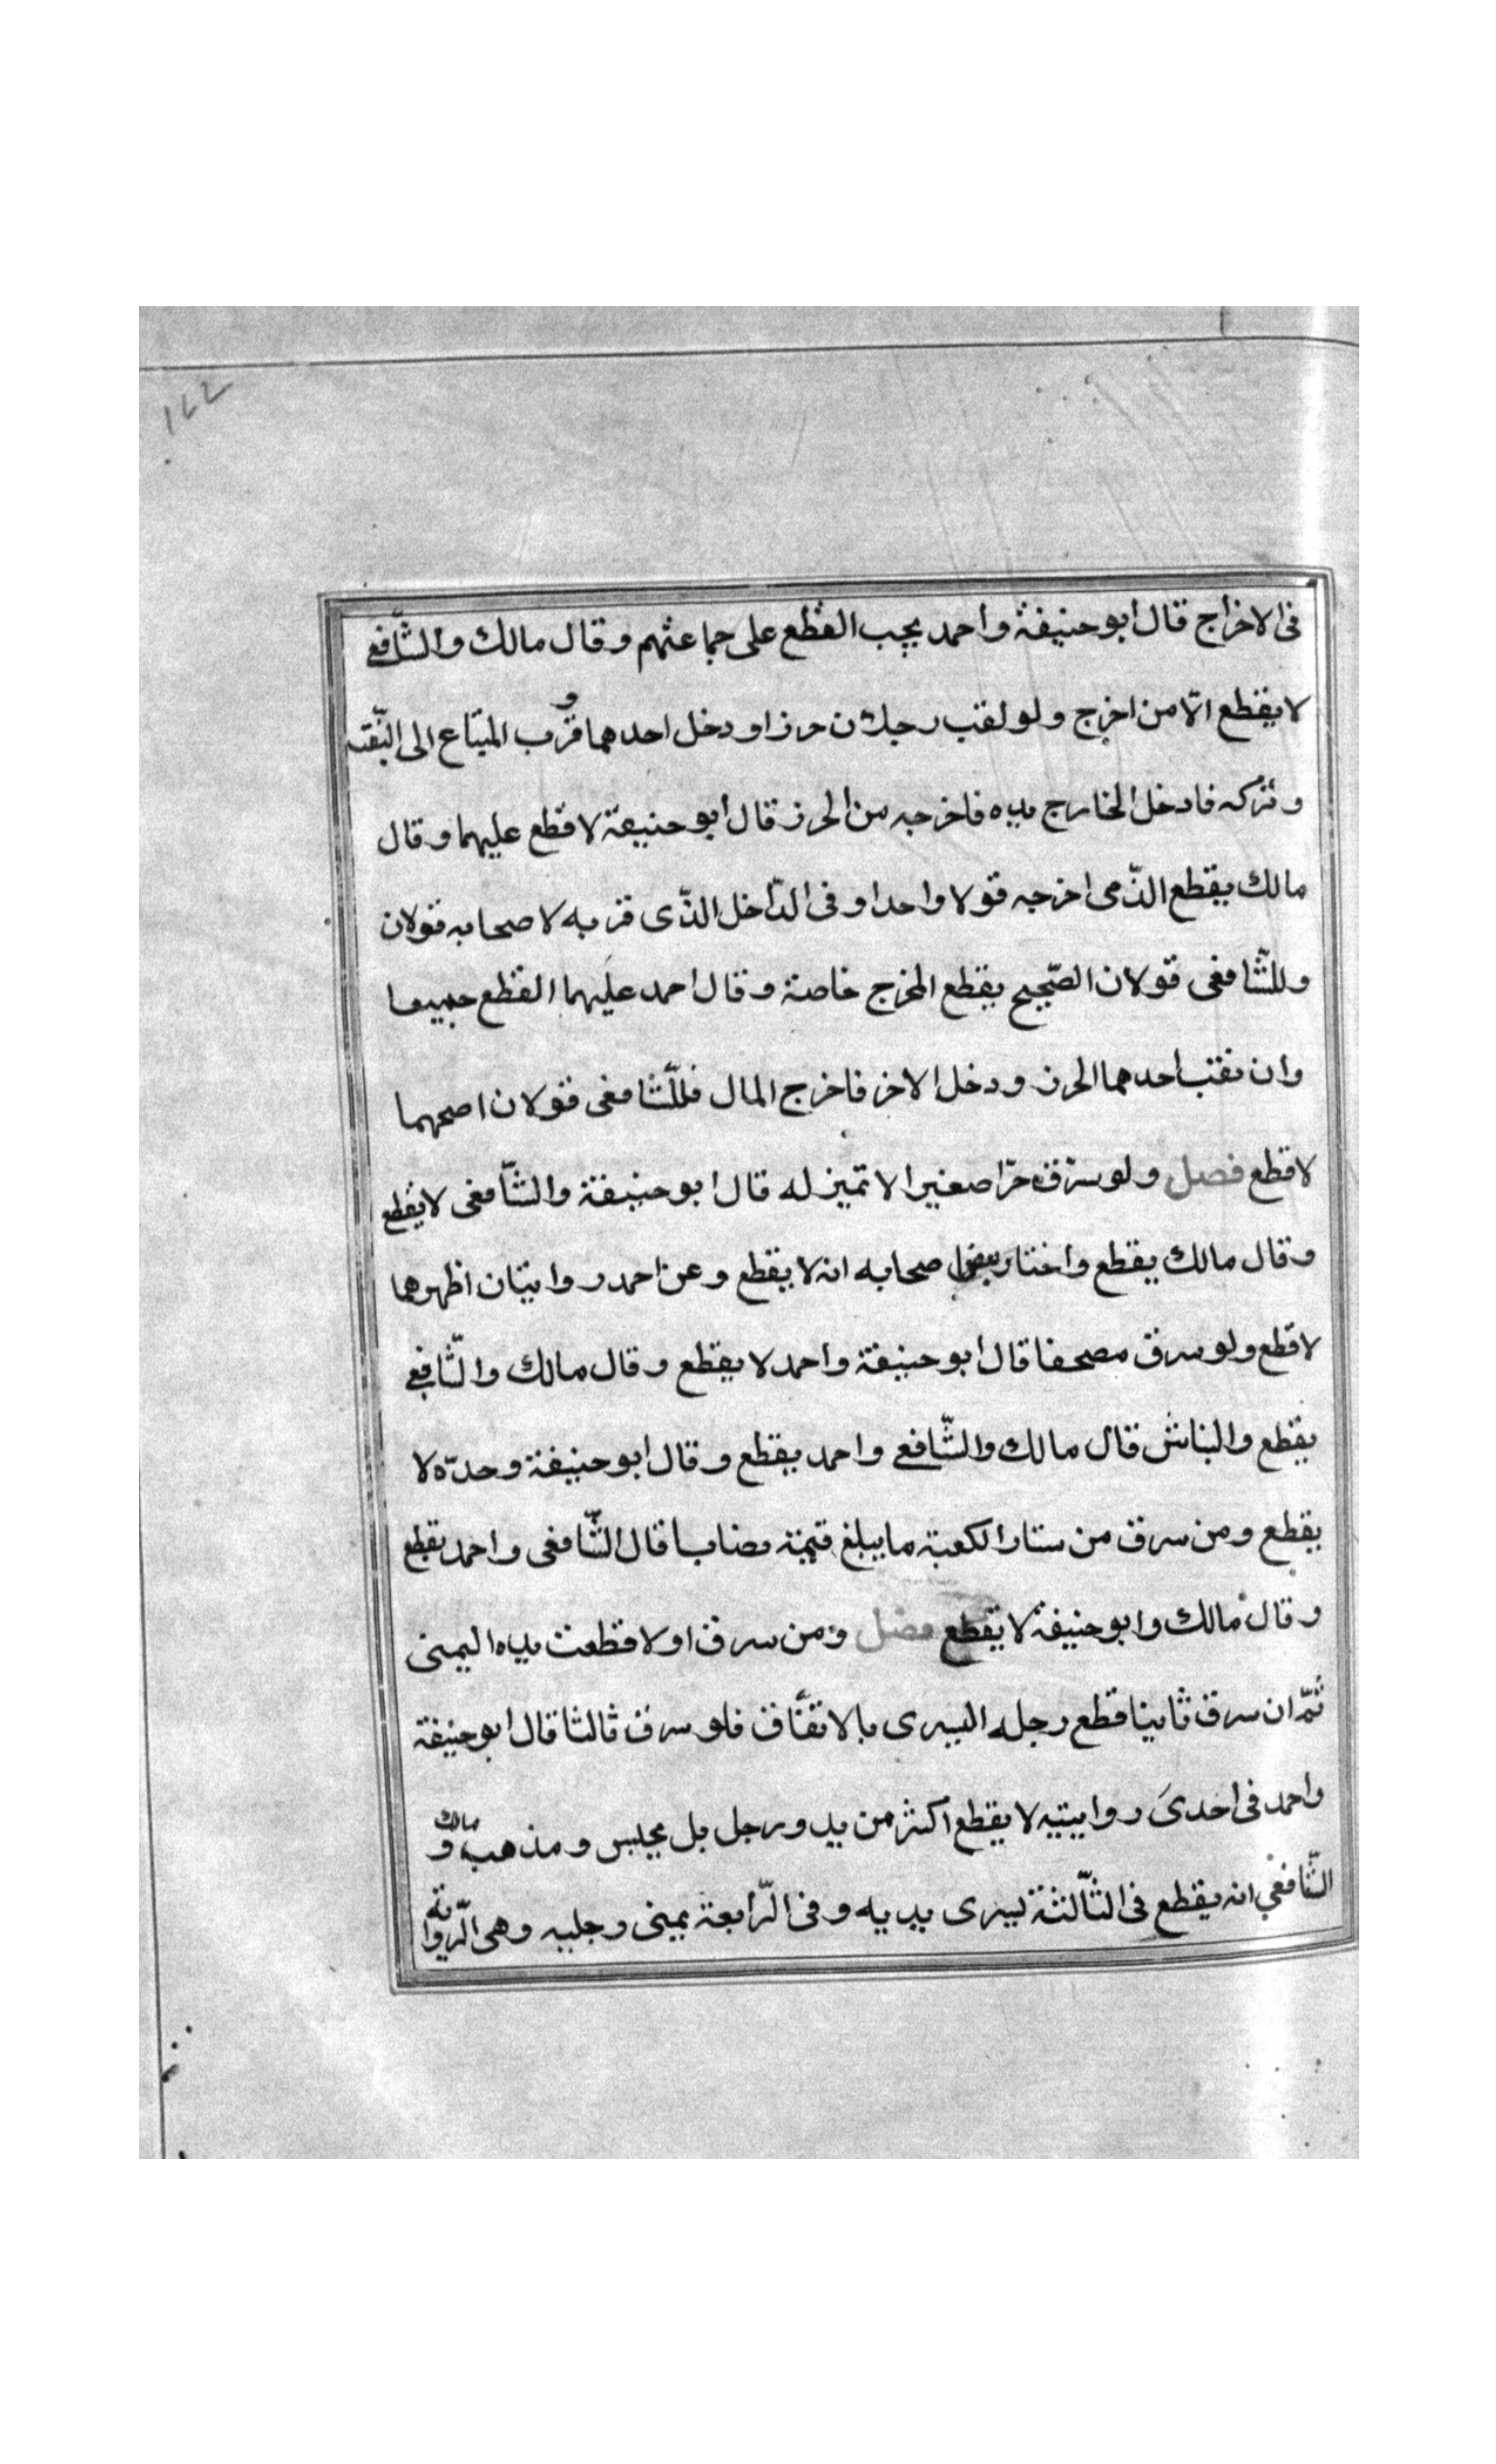 ١٢٢
فى الاخراج قال ابو حنيفة واحمد يجب القطع على جماعتهم وقال مالك والشّافعى
لا يقطع الّا من اخرج ولو لقب رجلان حرزا ودخل احدهما وقرب المتاع الى النّقب
وتركه فادخل الخارج يده فاخرجه من الحرز قال ابو حنيفة لا قطع عليهما وقال
مالك يقطع الذّى اخرجه قولا واحدا وفى الدّاخل الذّى قربه لاصحابه قولان
وللشّافعى قولان الصّحيح يقطع المخرج خاصة وقال احمد عليهما القطع جميعا
وان نقب احدهما الحرز ودخل الاخر فاخرج المال فللشّافعى قولان اصحهما
لا قطع فصل ولو سرق حرّا صغيرا لا تميز له قال ابو حنيفة والشّافعى لا يقطع
وقال مالك يقطع واختار بعض اصحابه انه لا يقطع وعن احمد روايتان اظهرهما
لا قطع ولو سرق مصحفا قال ابو حنيفة واحمد لا يقطع وقال مالك والشّافعى
يقطع والنباش قال مالك والشّافعى واحمد يقطع وقال ابو حنيفة وحدّه لا
يقطع ومن سرق من ستار الكعبة ما يبلغ قيمته نصابا قال الشّافعى واحمد يقطع
وقال مالك وابو حنيفة لا يقطع فصل ومن سرق اولا قطعت يده اليمنى
ثمّ ان سرق ثانيا قطع رجله اليسرى بالاتفاق فلو سرق ثالثا قال ابو حنيفة
واحمد فى احدىَ روايتيه لا يقطع اكثر من يد ورجل بل يحبس ومذهب مالك و
الشّافعي انه يقطع فى الثّالثة يسرى يديه وفى الرّابعة يمنى رجليه وهى الرّواية